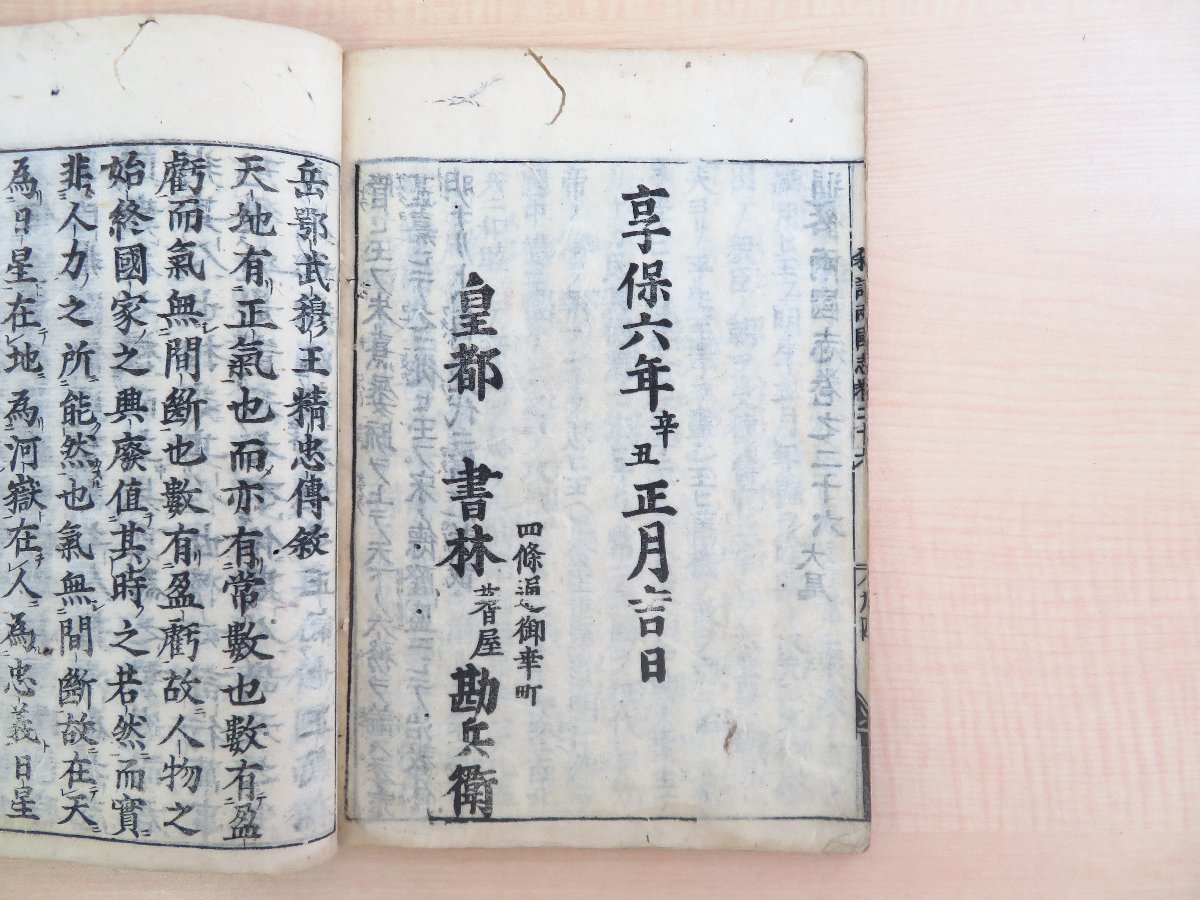 享保六年辛丑正月吉日
四條通御幸町
皇都 書林 蓍屋 勘兵衛
岳鄂武穆王精忠傳敘
天地有正氣也而亦有常數也數有盈
虧而氣無間斷也數有盈虧故人物之
始終國家之興廢值其時之若然而實
非人力之所能然也氣無間斷故在天
為日星在地為河嶽在人為忠義日星